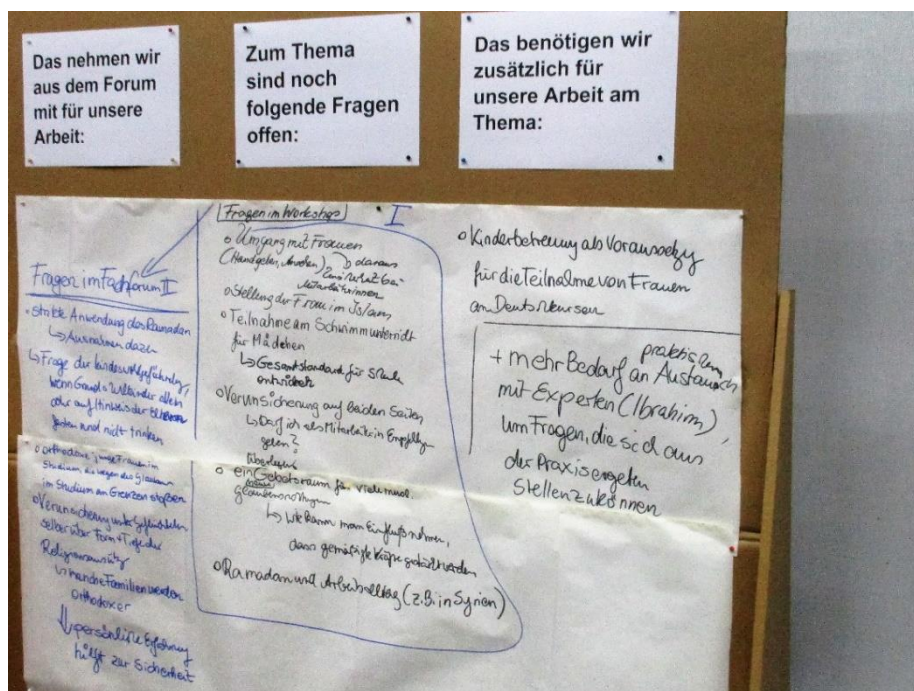 Das nehmen wir
aus dem Forum
mit für unsere
Arbeit:
Zum Thema
sind noch
folgende Fragen
offen:
Das benötigen wir
zusätzlich für
unsere Arbeit am
Thema:
Fragen im Fachforum II
• strikte Anwendung des Ramadan
↳ Ausnahmen dazu
↳ Frage der Kindeswohlgefährdung,
wenn Grund- Kinder allein
oder auf Hinweis der Eltern
fasten und nicht trinken
• orthodoxe junge Frauen im
Studium, die wegen des Glaubens
im Studium an Grenzen stoßen
• Verunsicherung unter
selber über Form + Tiefe der
Religionsausübg
↳ manche Familien werden
orthodoxer
↓ persönliche Erfahrung
hilft zur Sicherheit
Fragen im Workshop I
o Umgang mit Frauen
(Handgeben, ) → daraus
bei
Mitarbeiterinnen
o Stellung der Frau im Islam
o Teilnahme am Schwimmunterricht
für Mädchen
↳ Gesamtstandard für
entwickeln
o Verunsicherung auf beiden Seiten
↳ Darf ich als Mitarbeiterin
geben?
überlegen
o ein Gebetsraum für viele musl.
Glaubensrichtungen
↳ Wie kann man Einfluß nehmen,
dass gemäßigte Kräfte gestärkt werden
o Ramadan und Arbeitsalltag (z.B. in Syrien)
o Kinderbetreuung als Voraussetzg
für die Teilnahme von Frauen
an Deutschkursen
praktischem
+ mehr Bedarf an Austausch
mit Experten (Ibrahim),
um Fragen, die sich aus
der Praxis ergeben
stellen zu können